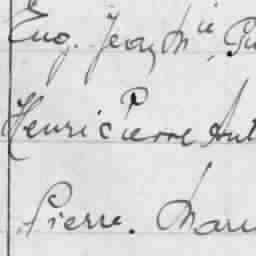 Eug. Jean Mie,
Henri Pierre Ant
Pierre. Marc